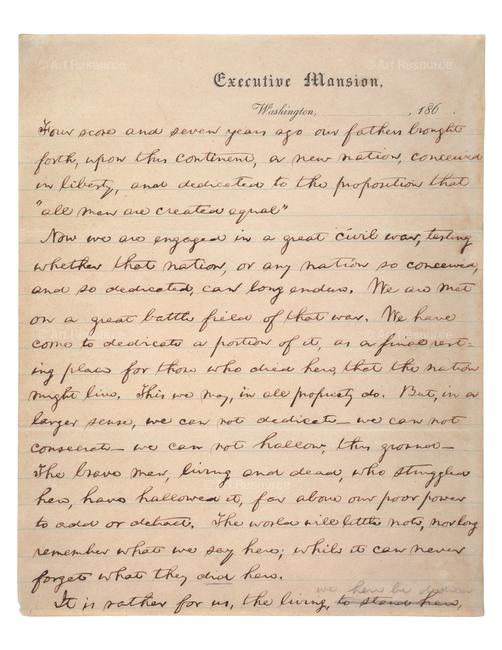 Executive Mansion,
Washington, , 186 .
Four score and seven years ago our fathers brought
forth, upon this continent, a new nation, conceived
in liberty, and dedicated to the proposition that
"all men are created equal"
Now we are engaged in a great civil war, testing
whether that nation, or any nation so conceived,
and so dedicated, can long endure. We are met
on a great battle field of that war. We have
come to dedicate a portion of it, as a final rest-
ing place for those who died here, that the nation
might live. This we may, in all propriety do. But, in a
larger sense, we can not dedicate – we can not
consecrate – we can not hallow, this ground –
The brave men, living and dead, who struggled
here, have hallowed it, far above our poor power
to add or detract. The world will little note, nor long
remember what we say here; while it can never
forget what they did here.
we here be
It is rather for us, the living, to stand here,
© Art Resource
© Art Resource